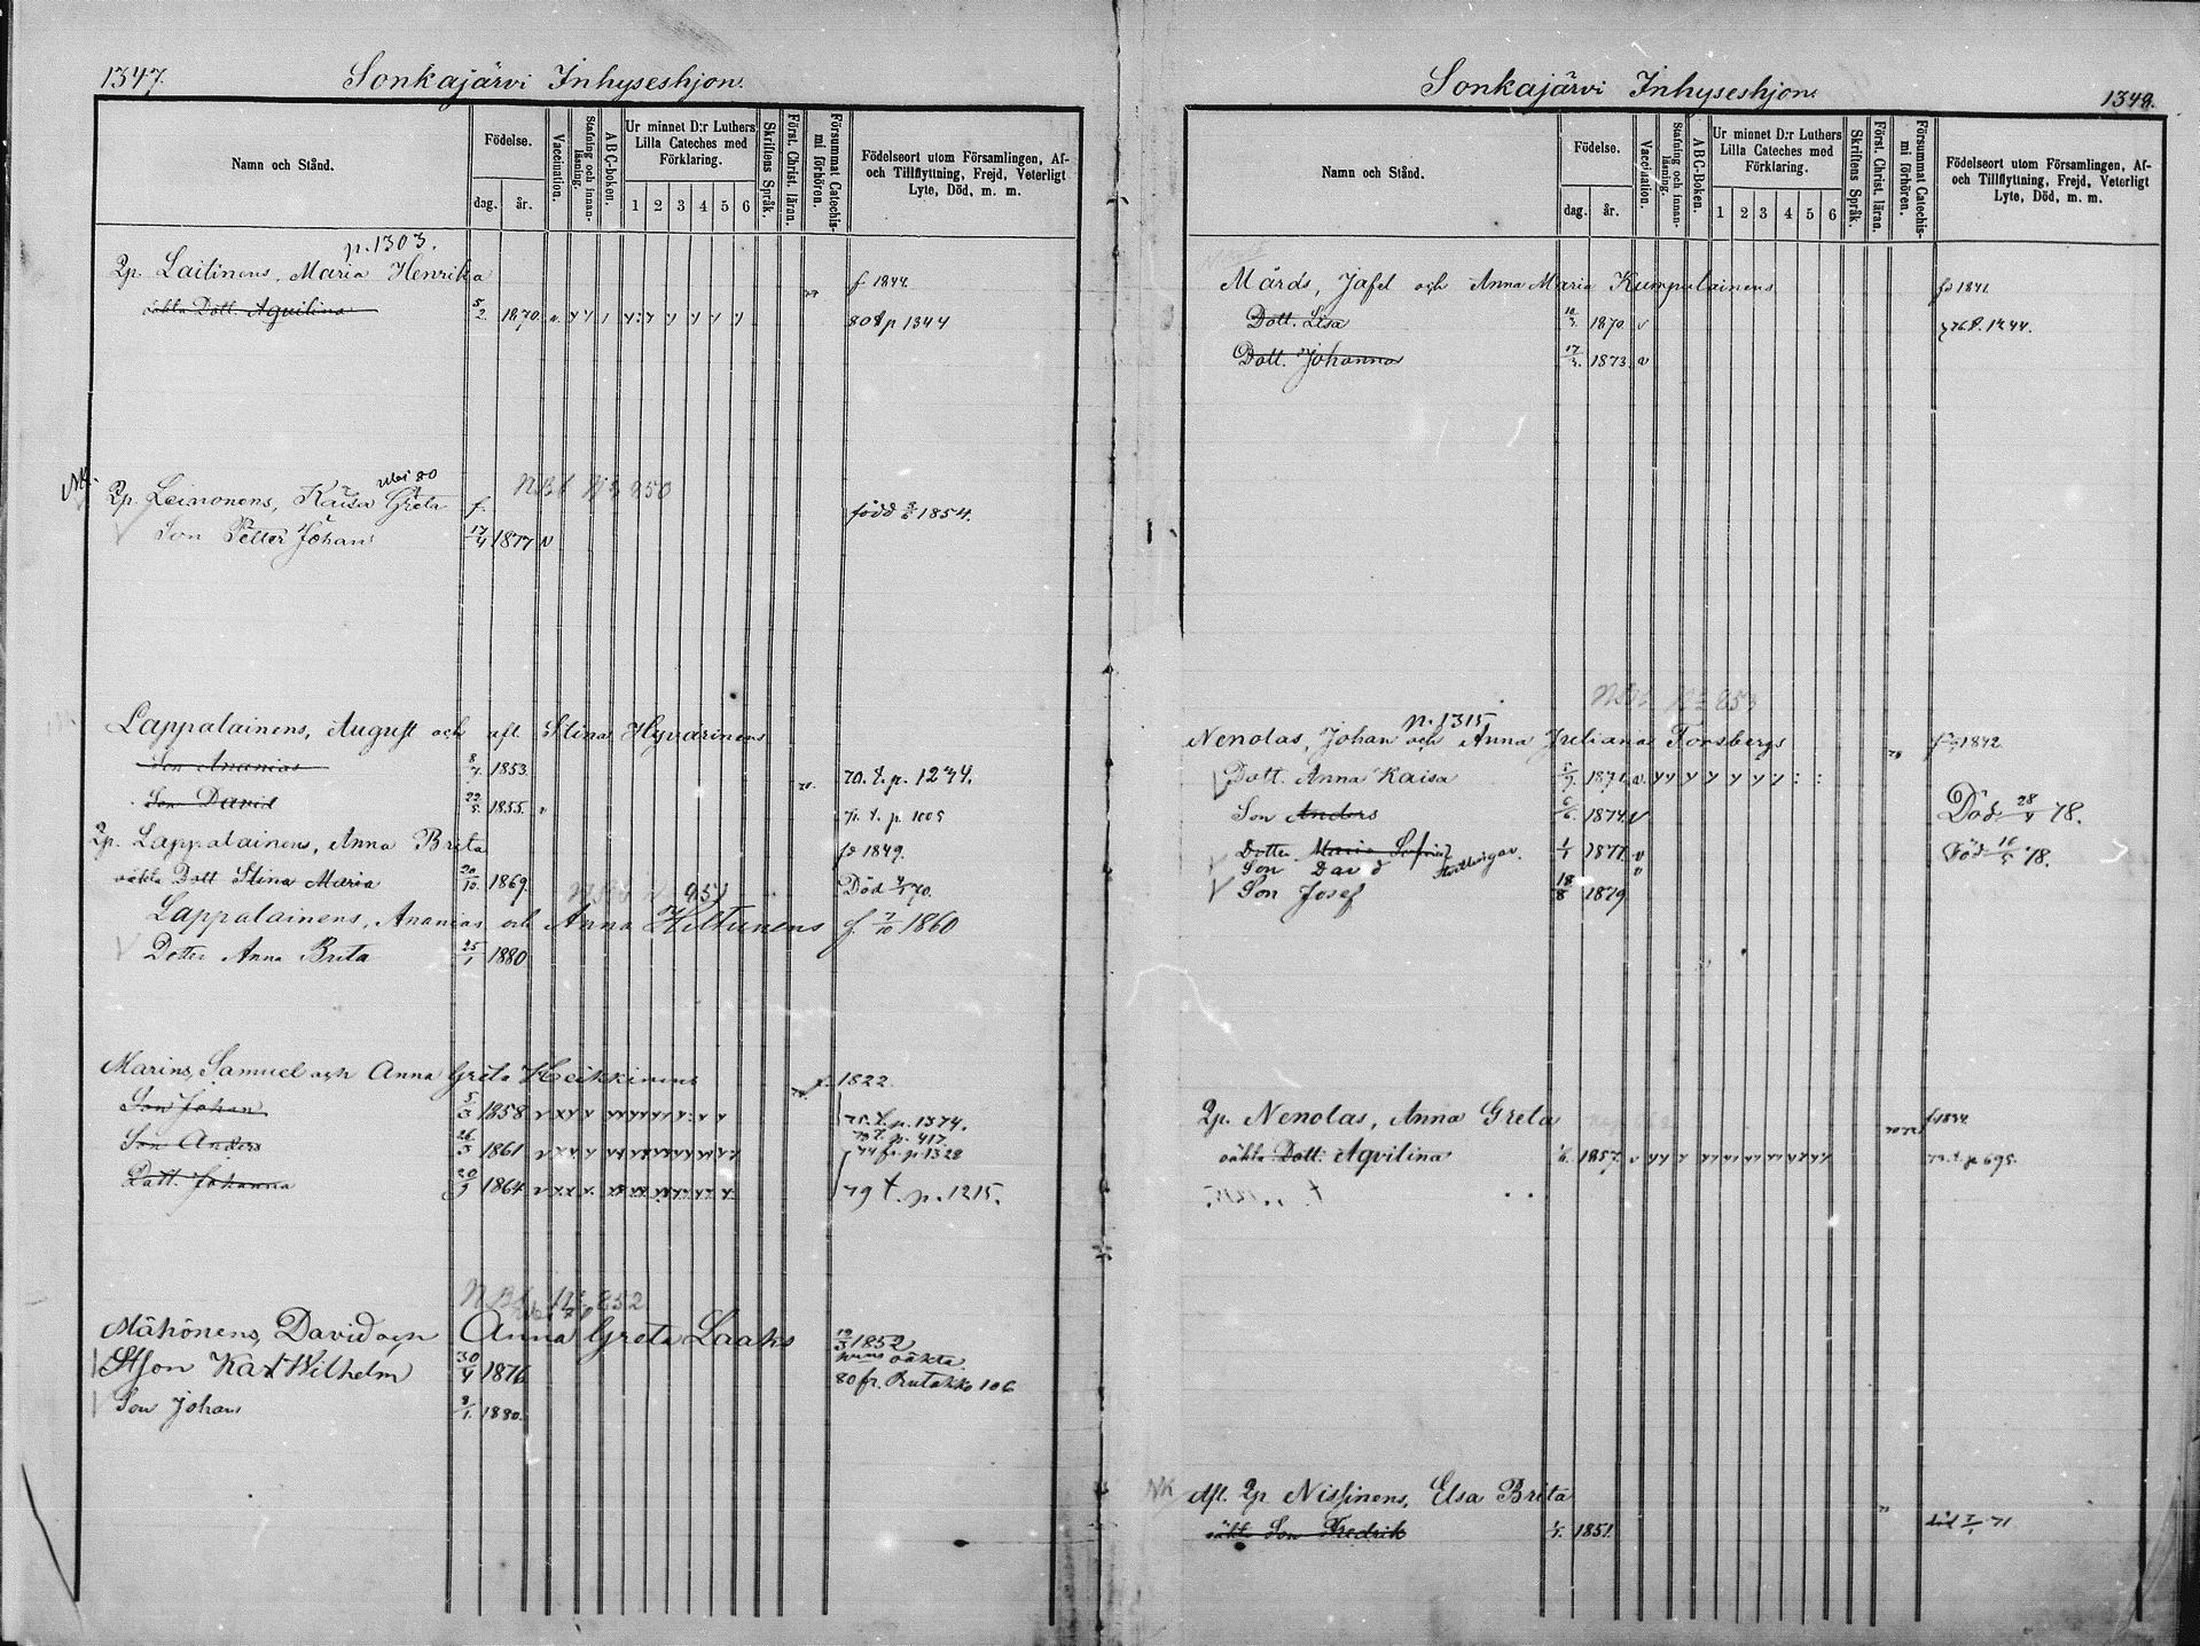 1347.
Sonkajärvi Inhyseshjon.
Namn och Stånd.
Födelse.
dag.
år.
Vaccination.
Stafning och innanläsning.
ABC-boken.
Ur minnet D:r Luthers Lilla Cateches med Förklaring.
1 2 3 4 5 6
Skriftens Språk.
Först. Christ. läran.
Försummat Catechismi förhören.
Födelseort utom Församlingen, Af- och Tillflyttning, Frejd, Veterligt Lyte, Död, m. m.
p. 1303.
Qp. Laitinens, Maria Henrika f 1844.
oäkta Dott. Aquilina 5/2 1870. 80 t p 1344
Qp. Leinonens, Kaisa Greta f. född 1854.
Son Petter Johan 17/4 1877 v
Lappalainens, August och aft Stina Hyvärinens
Son Ananias 8/7. 1853. 70. t. p. 1244.
Son David 22/5. 1855. v 71. t. p. 1005
Qp. Lappalainens, Anna Brita fd 1849.
oäkta Dott Stina Maria 20/10. 1869. Död 70.
Lappalainens, Ananias och Anna Hiltunens f. 7/10 1860
Dotter Anna Brita 25/1 1880
Marins, Samuel och Anna Greta Heikkinens f. 1822
Son Johan 5/3 1858 75. t. p. 1374.
Son Anders 26/3 1861 t. p. 417. 74 fr. p. 1328
Dott. Johanna 20/9 1864 79 t. p. 1215.
NBb № 252
Mähönens, David och Anna Greta Laaks 1852
Stson Karl Wilhelm 30/4 1876 oäkta. 80 fr. Rutakko 106
Son Johan 1880.
Sonkajärvi Inhyseshjon.
1348.
Namn och Stånd.
Födelse.
dag.
år.
Vaccination.
Stafning och innanläsning.
ABC-Boken.
Ur minnet D:r Luthers Lilla Cateches med Förklaring.
1 2 3 4 5 6
Skriftens Språk.
Först. Christ. läran.
Försummat Catechismi förhören.
Födelseort utom Församlingen, Af- och Tillflyttning, Frejd, Veterligt Lyte, Död, m. m.
Mårds, Jafet och Anna Maria Kumpulainens fd 1841.
Dott. Lisa 1870. v
Dott. Johanna 17/3. 1873. v
p. 1315
Nenolas, Johan och Anna Juliana Forsbergs 1842
Dott. Anna Kaisa 1871. v
Son Anders 6/6. 1874. v Död 28/4 78.
Dotter Maria Sofia 1/1 1877. v Död 16/5 78.
Son David
Son Josef 18/8 1879
Qp. Nenolas, Anna Greta
oäkta Dott. Aqvilina 1857. t. p 695.
Aft. Qp Nissinens, Elsa Brita
oäkta Son Fredrik 1851. död 71